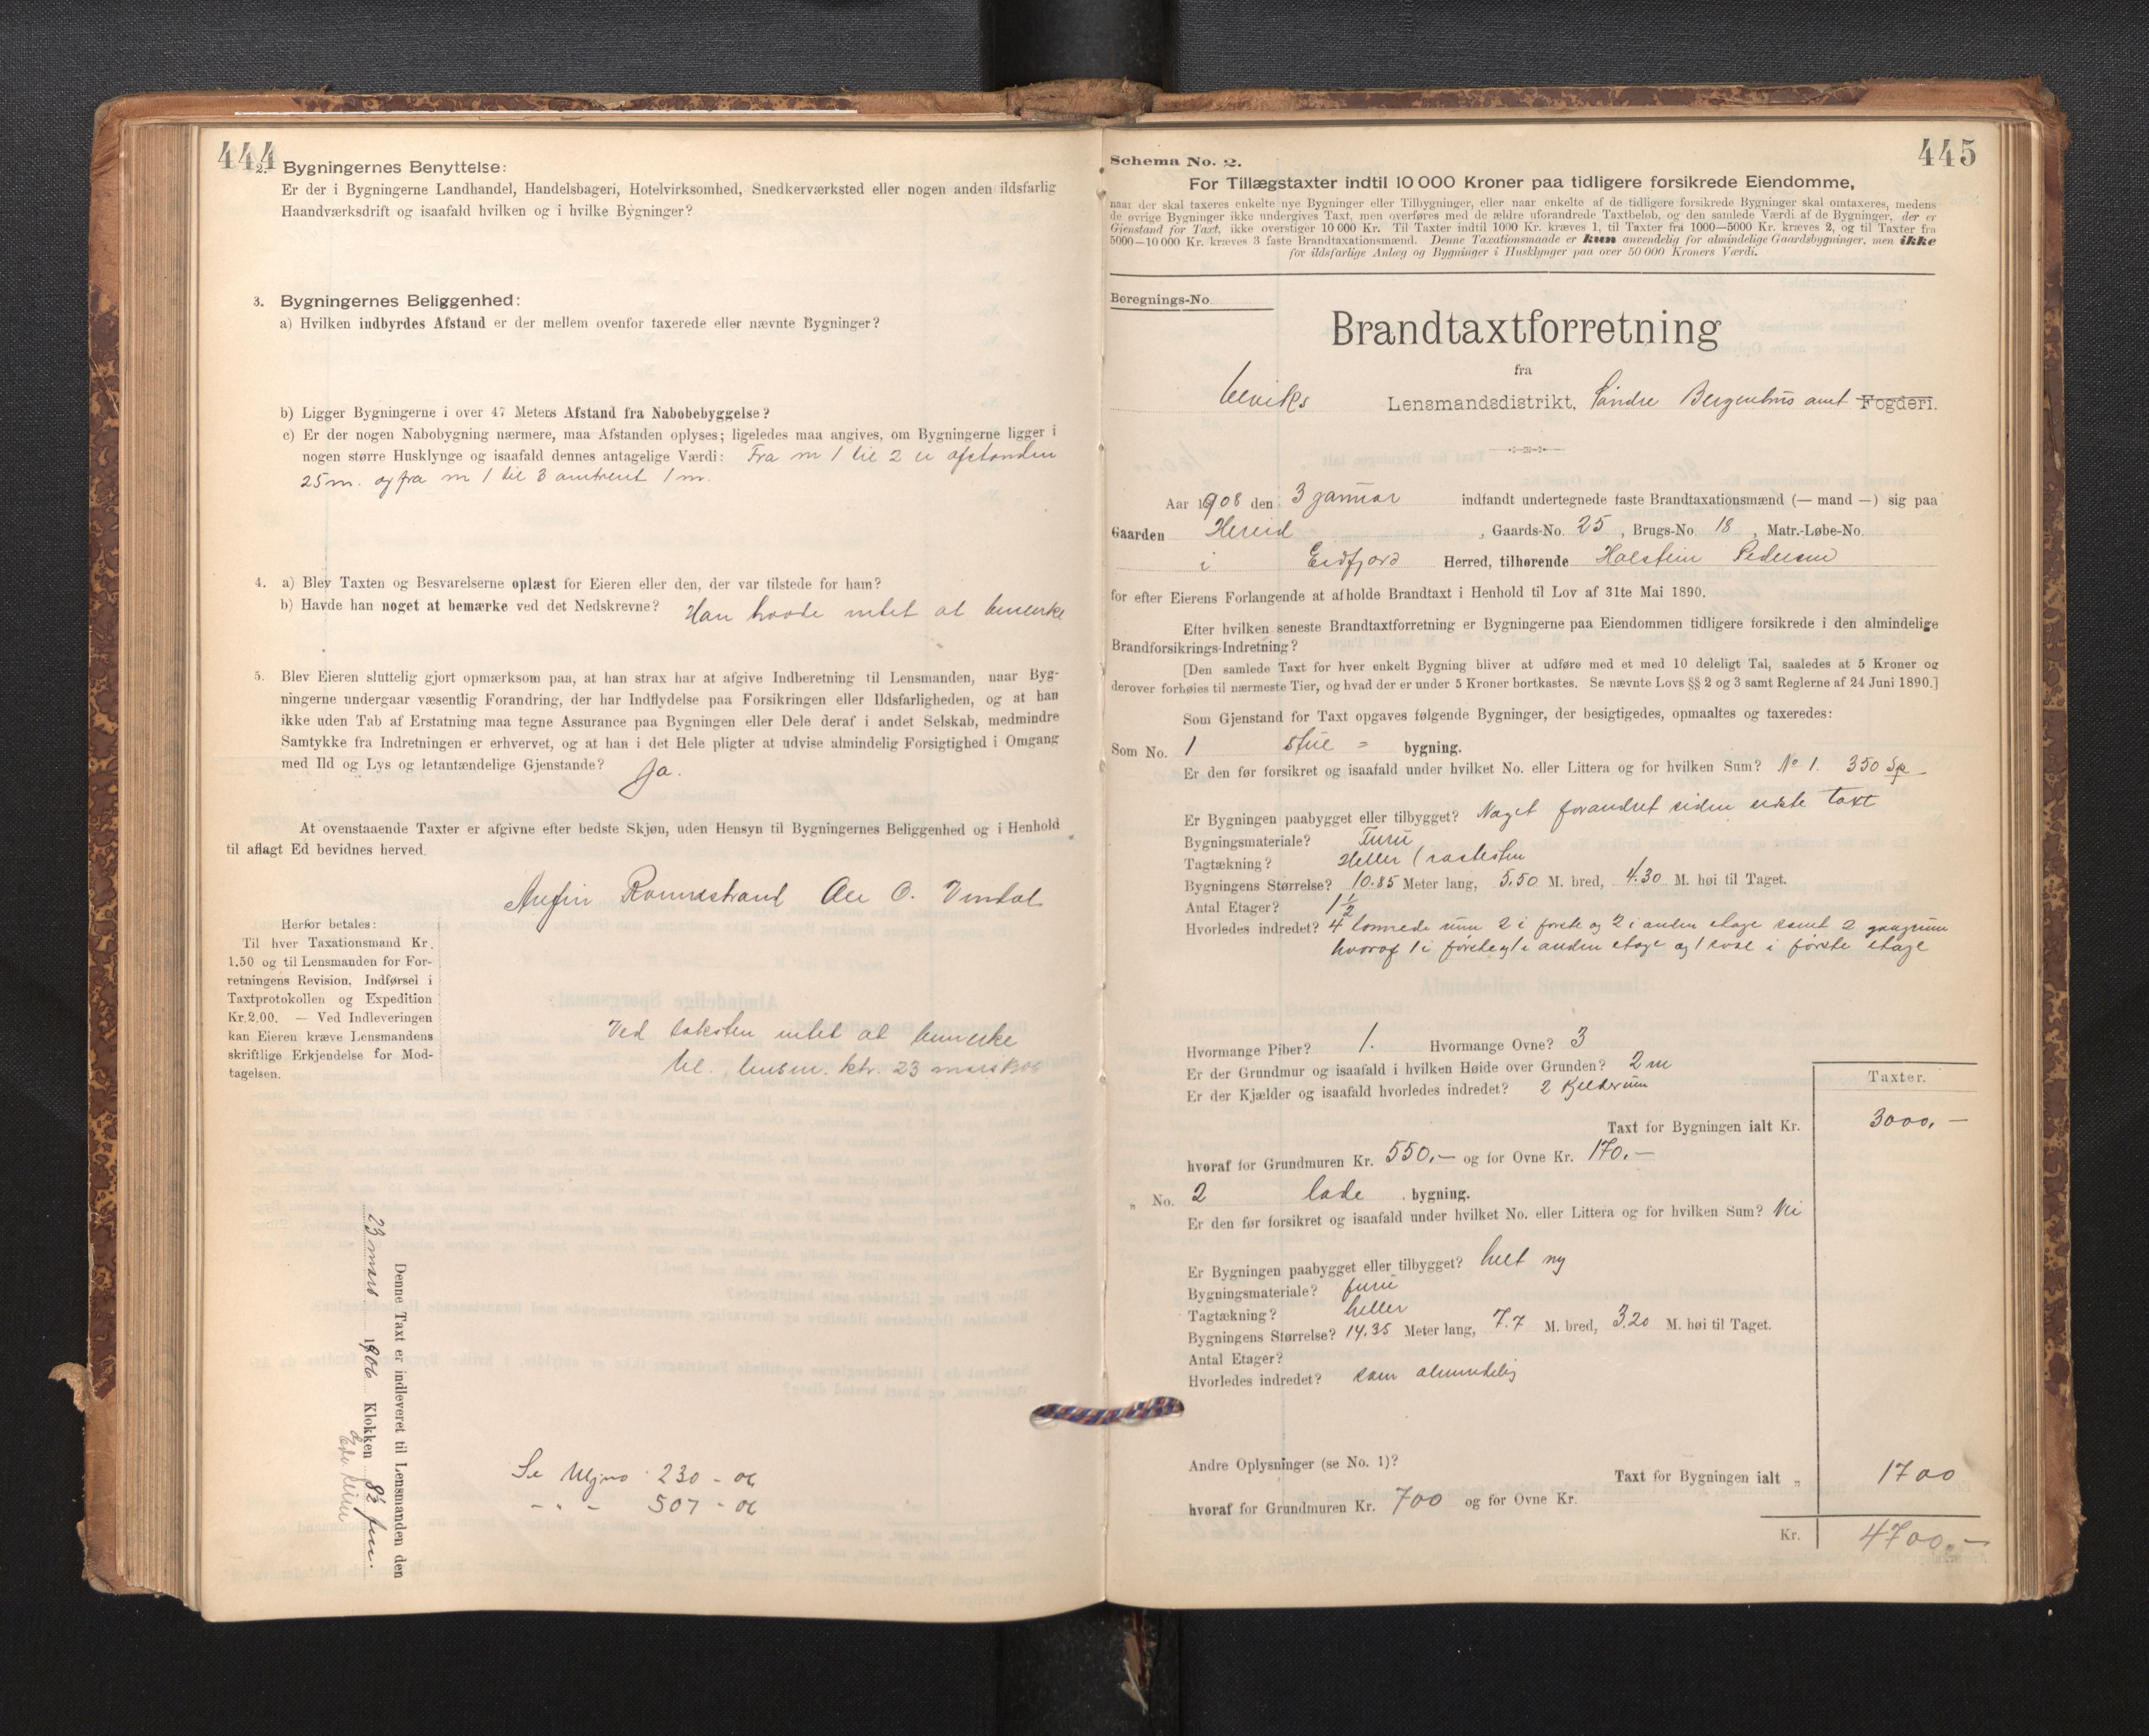 444
2. Bygningernes Benyttelse:
Er der i Bygningerne Landhandel, Handelsbageri, Hotelvirksomhed, Snedkerværksted eller nogen anden ildsfarlig
Haandværksdrift og isaafald hvilken og i hvilke Bygninger?
3. Bygningernes Beliggenhed:
a) Hvilken indbyrdes Afstand er der mellem ovenfor taxerede eller nævnte Bygninger?
b) Ligger Bygningerne i over 47 Meters Afstand fra Nabobebyggelse?
c) Er der nogen Nabobygning nærmere, maa Afstanden oplyses; ligeledes maa angives, om Bygningerne ligger i
nogen større Husklynge og isaafald dennes antagelige Værdi: Fra nr 1 til 2 er afstanden
25 m. og fra nr 1 til 3 omtrent 1 m.
4. a) Blev Taxten og Besvarelserne oplæst for Eieren eller den, der var tilstede for ham?
b) Havde han noget at bemærke ved det Nedskrevne? Han havde intet at bemerke
5. Blev Eieren sluttelig gjort opmærksom paa, at han strax har at afgive Indberetning til Lensmanden, naar Byg-
ningerne undergaar væsentlig Forandring, der har Indflydelse paa Forsikringen eller Ildsfarligheden, og at han
ikke uden Tab af Erstatning maa tegne Assurance paa Bygningen eller Dele deraf i andet Selskab, medmindre
Samtykke fra Indretningen er erhvervet, og at han i det Hele pligter at udvise almindelig Forsigtighed i Omgang
med Ild og Lys og letantændelige Gjenstande? Ja.
At ovenstaaende Taxter er afgivne efter bedste Skjøn, uden Hensyn til Bygningernes Beliggenhed og i Henhold
til aflagt Ed bevidnes herved.
Ole O. Vindal
Herfor betales:
Til hver Taxationsmand Kr.
1.50 og til Lensmanden for For-
retningens Revision, Indførsel i
Taxtprotokollen og Expedition
Kr. 2.00. — Ved Indleveringen
kan Eieren kræve Lensmandens
skriftlige Erkjendelse for Mod-
tagelsen.
Ved taksten intet at bemerke
lensm. ktr. 23 mars
Denne Taxt er indleveret til Lensmanden den
23 mars 1908 Klokken 8½ fm.
Se 230 - 06
- " - 507 - 06
445
Schema No. 2.
For Tillægstaxter indtil 10 000 Kroner paa tidligere forsikrede Eiendomme,
naar der skal taxeres enkelte nye Bygninger eller Tilbygninger, eller naar enkelte af de tidligere forsikrede Bygninger skal omtaxeres, medens
de øvrige Bygninger ikke undergives Taxt, men overføres med de ældre uforandrede Taxtbeløb, og den samlede Værdi af de Bygninger, der er
Gjenstand for Taxt, ikke overstiger 10 000 Kr. Til Taxter indtil 1000 Kr. kræves 1, til Taxter fra 1000—5000 Kr. kræves 2, og til Taxter fra
5000—10 000 Kr. kræves 3 faste Brandtaxationsmænd. Denne Taxationsmaade er kun anvendelig for almindelige Gaardsbygninger, men ikke
for ildsfarlige Anlæg og Bygninger i Husklynger paa over 50 000 Kroners Værdi.
Beregnings-No
Brandtaxtforretning
fra
Ulviks Lensmandsdistrikt, Søndre Bergenhus amt Fogderi.
Aar 1908 den 3 januar indfandt undertegnede faste Brandtaxationsmænd (— mand —) sig paa
Gaarden Hereid, Gaards-No. 25, Brugs-No. 18, Matr.-Løbe-No.
i Eidfjord Herred, tilhørende Holstein Pedersen
for efter Eierens Forlangende at afholde Brandtaxt i Henhold til Lov af 31te Mai 1890.
Efter hvilken seneste Brandtaxtforretning er Bygningerne paa Eiendommen tidligere forsikrede i den almindelige
Brandforsikrings-Indretning?
[Den samlede Taxt for hver enkelt Bygning bliver at udføre med et med 10 deleligt Tal, saaledes at 5 Kroner og
derover forhøies til nærmeste Tier, og hvad der er under 5 Kroner bortkastes. Se nævnte Lovs §§ 2 og 3 samt Reglerne af 24 Juni 1890.]
Som Gjenstand for Taxt opgaves følgende Bygninger, der besigtigedes, opmaaltes og taxeredes:
Som No. 1 stue = bygning.
Er den før forsikret og isaafald under hvilket No. eller Littera og for hvilken Sum? No 1. 350 Sp
Er Bygningen paabygget eller tilbygget? Noget forandret siden sidste taxt
Bygningsmateriale? Furu
Tagtækning? Heller
Bygningens Størrelse? 10.85 Meter lang, 5.50 M. bred, 4.30 M. høi til Taget.
Antal Etager? 1½
Hvorledes indredet? 4 tømrede rum 2 i første og 2 i anden etage samt 2 gangrum
hvoraf 1 i første og 1 i anden etage og 1 sval i første etage
Hvormange Piber? 1. Hvormange Ovne? 3
Er der Grundmur og isaafald i hvilken Høide over Grunden? 2 m
Er der Kjælder og isaafald hvorledes indredet? 2 Kjelderrum
Taxter.
Taxt for Bygningen ialt Kr. 3000,-
hvoraf for Grundmuren Kr. 550,- og for Ovne Kr. 170.-
" No. 2 lade bygning.
Er den før forsikret og isaafald under hvilket No. eller Littera og for hvilken Sum? Nei
Er Bygningen paabygget eller tilbygget? helt ny
Bygningsmateriale? furu
Tagtækning? heller
Bygningens Størrelse? 14.35 Meter lang, 7.7 M. bred, 3.20 M. høi til Taget.
Antal Etager?
Hvorledes indredet? som almindelig
Andre Oplysninger (se No. 1)?
Taxt for Bygningen ialt „ 1700
hvoraf for Grundmuren Kr. 700 og for Ovne Kr.
Kr. 4700.-